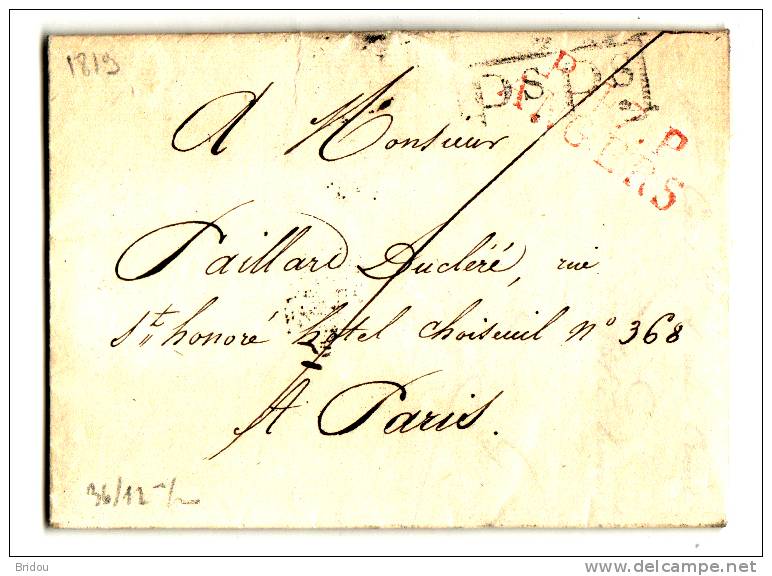 1819
P.S P.S
P. . P
ANGERS
A Monsieur
Paillard Ducléré, rue
St. honoré hôtel choiseuil n° 368
A Paris.
36/12
Bridou
delcampe.net